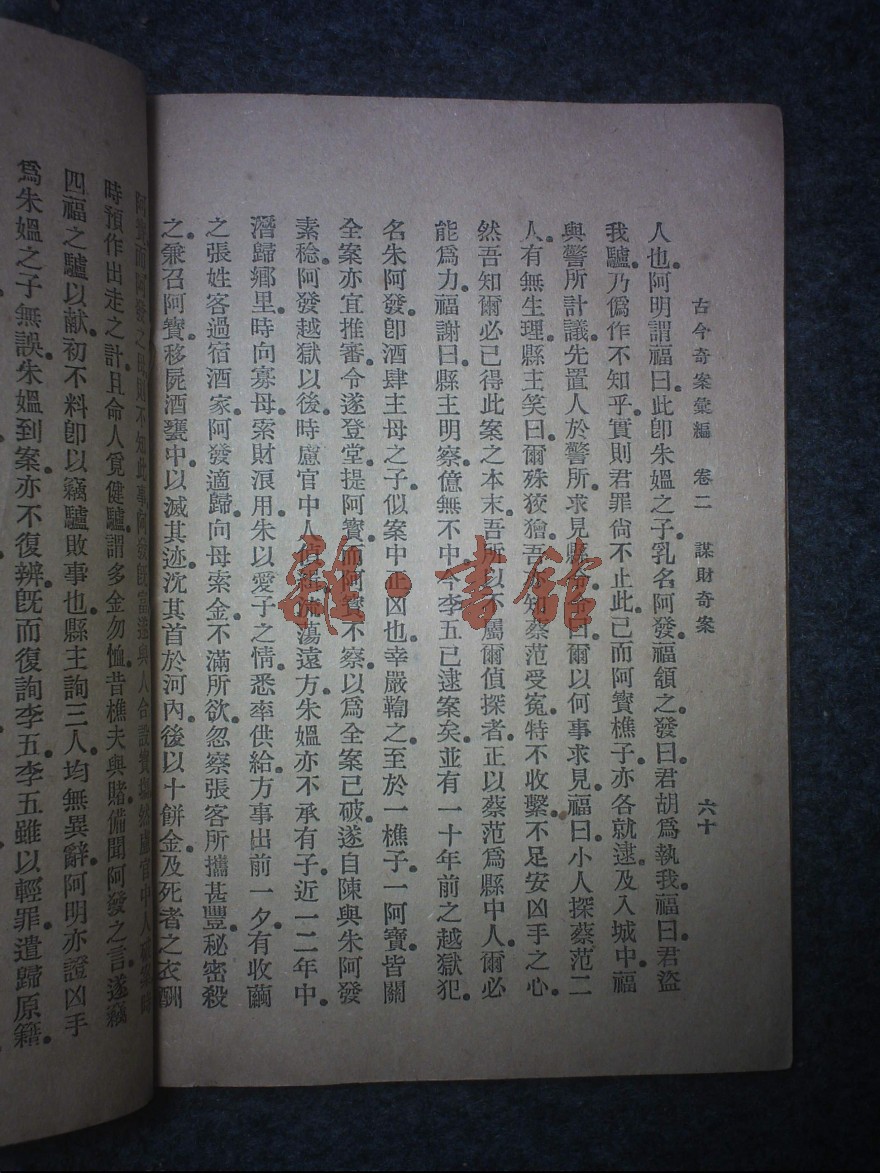 古今奇案彙編 卷二 謀財奇案 六十
人也。阿明謂福曰。此卽朱媼之子。乳名阿發。福頷之。發曰。君胡爲執我。福曰。君盜
我驢。乃僞作不知乎。實則君罪尙不止此。已而阿寶樵子。亦各就逮。及入城中。福
與警所計議。先置人於警所。求見縣令。令曰。爾以何事求見。福曰。小人探蔡范二
人。有無生理。縣主笑曰。爾殊狡獪。吾亦知蔡范受冤。特不收繫。不足安凶手之心。
然吾知爾必已得此案之本末。吾所以不屬爾偵探者。正以蔡范爲縣中人。爾必
能爲力。福謝曰。縣主明察。億無不中。今李五已逮案矣。並有一十年前之越獄犯。
名朱阿發。卽酒肆主母之子。似案中正凶也。幸嚴鞫之。至於一樵子。一阿寶。皆關
全案。亦宜推審。令遂登堂。提阿寶。而阿寶不察。以爲全案已破。遂自陳與朱阿發
素稔。阿發越獄以後。時慮官中人偵緝。流蕩遠方。朱媼亦不承有子。近一二年中。
潛歸鄉里。時向寡母索財浪用。朱以愛子之情。悉率供給。方事出前一夕。有收繭
之張姓客過宿酒家。阿發適歸。向母索金。不滿所欲。忽察張客所攜甚豐。秘密殺
之。兼召阿寶。移屍酒甕中。以滅其迹。沈其首於河內。後以十餅金。及死者之衣。酬
時預作出走之計。且命人覓健驢。謂多金勿恤。昔樵夫與賭。備聞阿發之言。遂竊
四福之驢以献。初不料卽以竊驢敗事也。縣主詢三人。均無異辭。阿明亦證凶手
爲朱媼之子無誤。朱媼到案。亦不復辨。旣而復詢李五。李五雖以輕罪遣歸原籍。
雜·書館